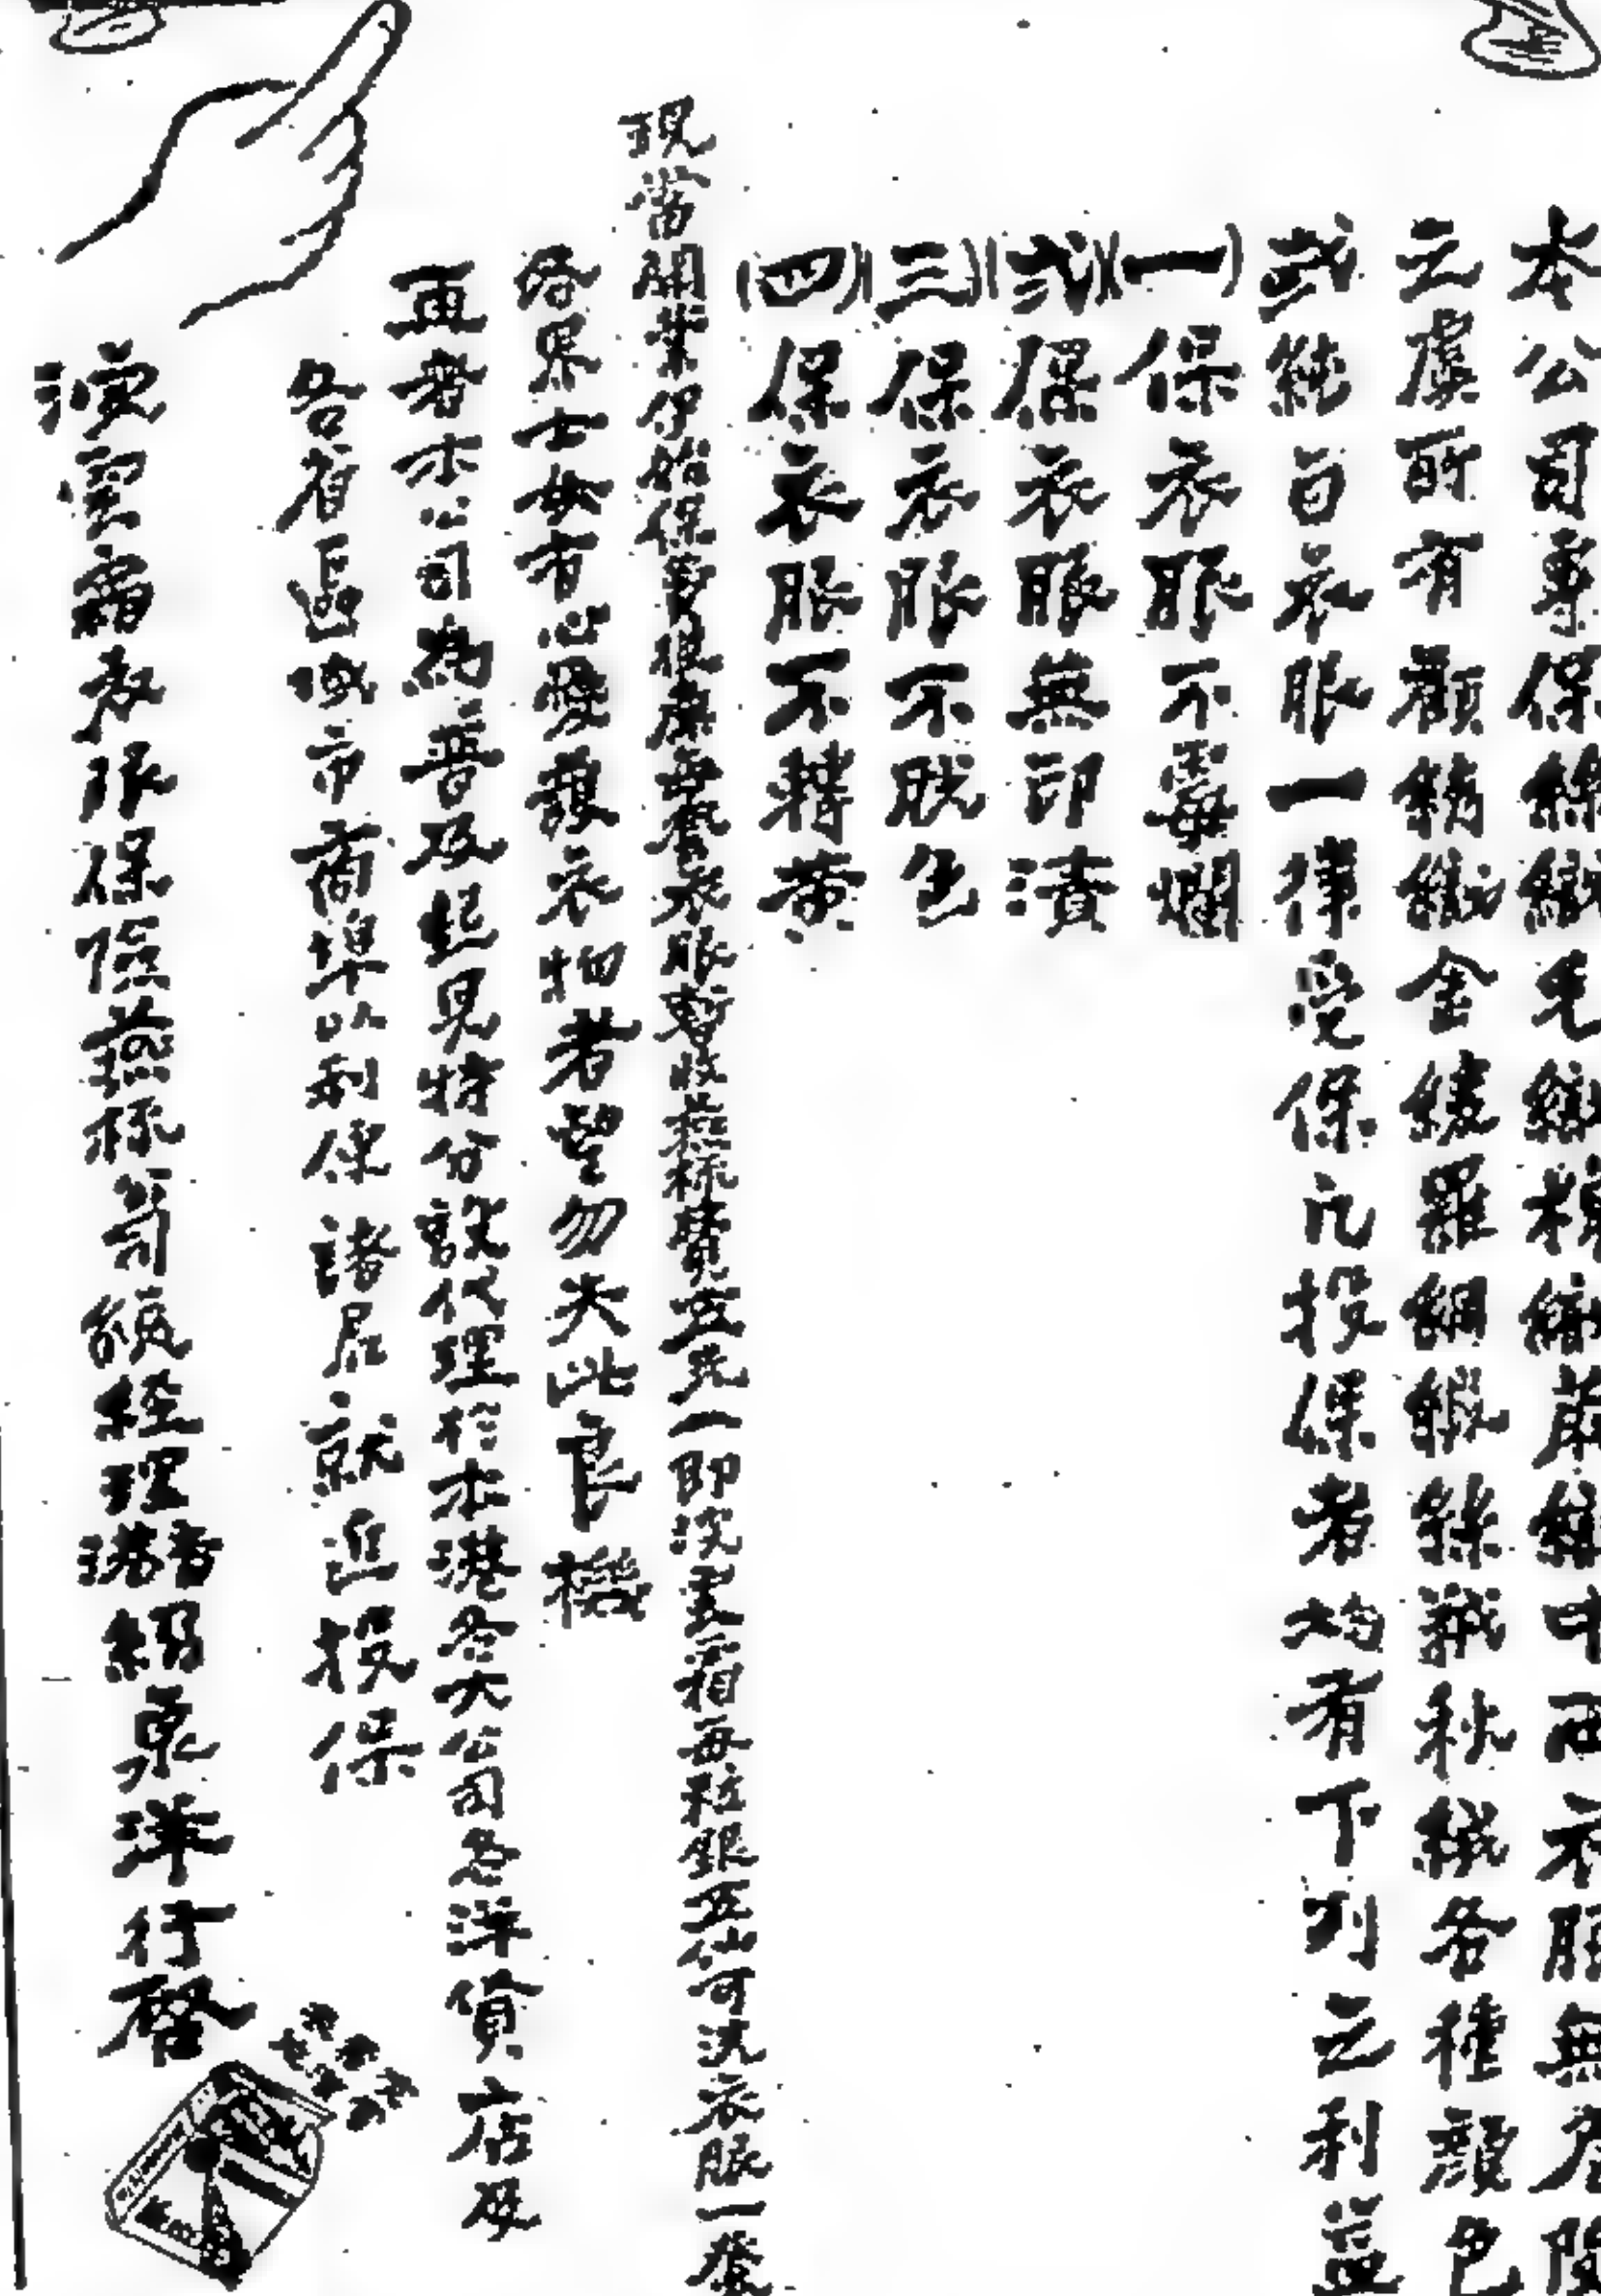 本公司專保絲織毛織棉織蔴織中西衣服無
之虞所有顧綉織金縷羅綢緞絲絨秋絨各種顏色
或純白衣服一律受保凡投保者均有下列之利益
(一)保衣服不霉爛
(弍)保衣服無印漬
(三)保衣服不脫色
(四)保衣服不轉黃
現當開業伊始保費極廉每套衣服暫收燕梳費五先一即洗雲霜每粒銀五仙可洗衣服一套
各界士女有心愛護衣物者望勿失此良機
再者本公司為普及起見特分設代理於本港各大公司各洋貨店及
各省區域市商埠以利便諸君就近投保
有限保險燕梳公司總經理香港紹泉洋行啓